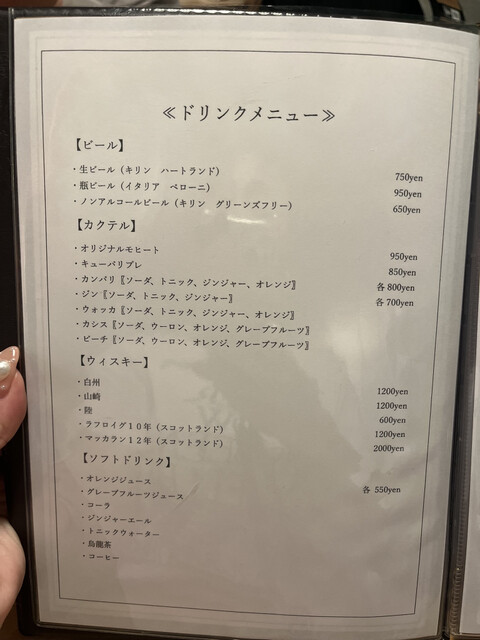 ≪ドリンクメニュー≫
【ビール】
・生ビール（キリン　ハートランド） 750yen
・瓶ビール（イタリア　ペローニ） 950yen
・ノンアルコールビール（キリン　グリーンズフリー） 650yen
【カクテル】
・オリジナルモヒート 950yen
・キューバリブレ 850yen
・カンパリ〖ソーダ、トニック、ジンジャー、オレンジ〗 各 800yen
・ジン〖ソーダ、トニック、ジンジャー〗 各 700yen
・ウォッカ〖ソーダ、トニック、ジンジャー、オレンジ〗
・カシス〖ソーダ、ウーロン、オレンジ、グレープフルーツ〗
・ピーチ〖ソーダ、ウーロン、オレンジ、グレープフルーツ〗
【ウィスキー】
・白州 1200yen
・山崎 1200yen
・陸 600yen
・ラフロイグ１０年（スコットランド） 1200yen
・マッカラン１２年（スコットランド） 2000yen
【ソフトドリンク】
・オレンジジュース 各 550yen
・グレープフルーツジュース
・コーラ
・ジンジャーエール
・トニックウォーター
・烏龍茶
・コーヒー